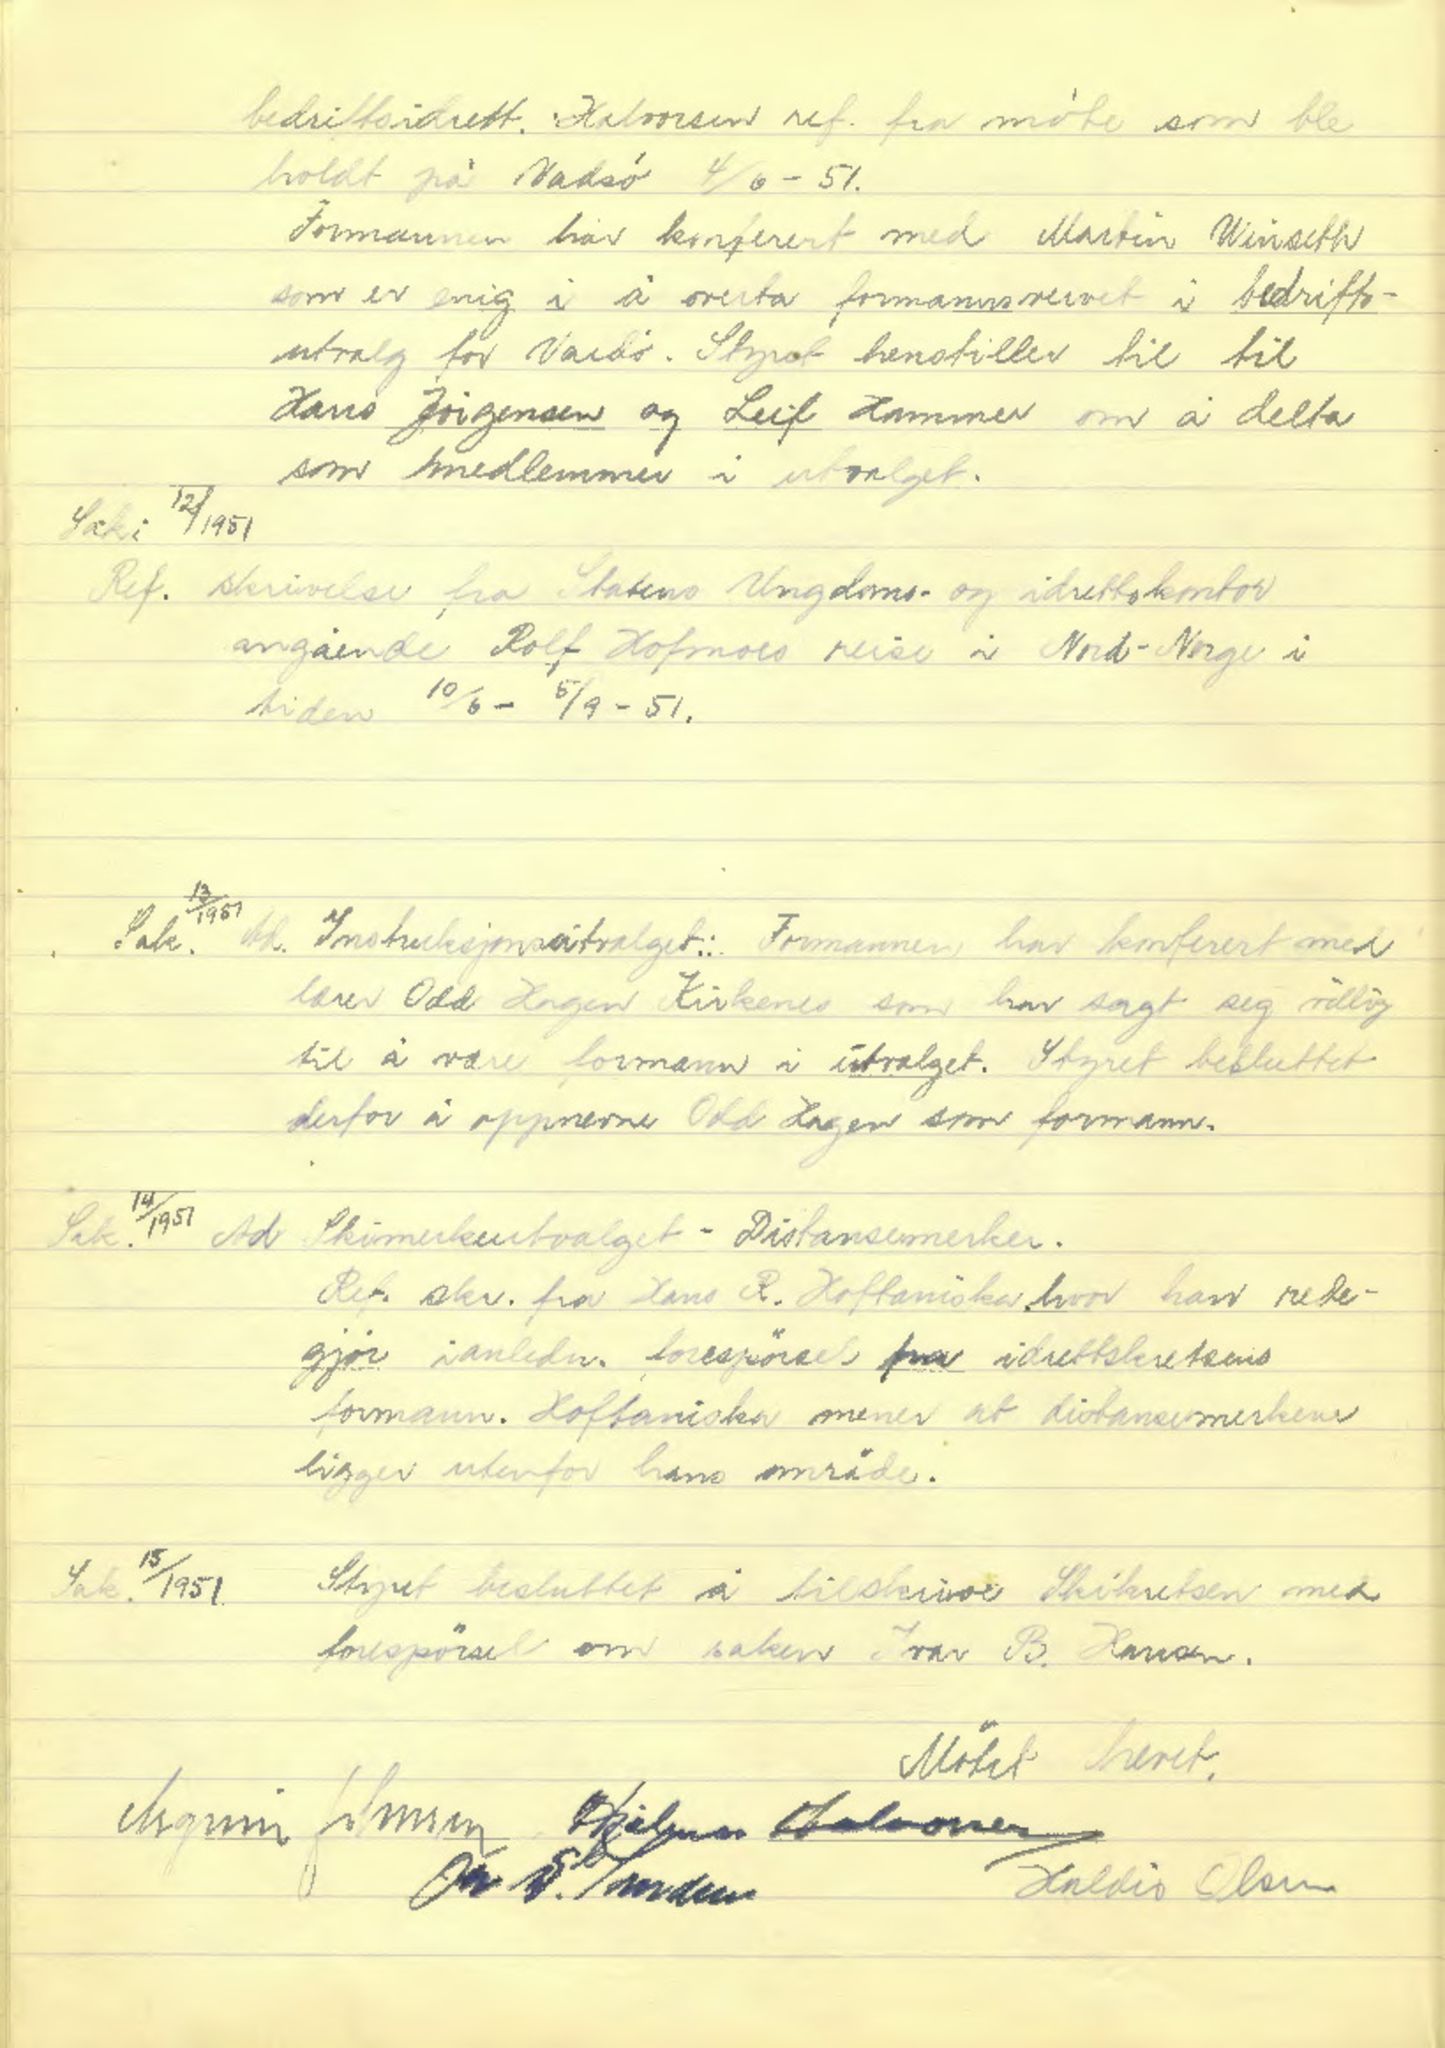 bedriftsidrett. Halvorsen ref. fra möte som ble
holdt på Vadsö 4/6 - 51.
Formannen har konferert med Martin Winseth
som er enig i å overta formannsvervet i bedrifts-
utvalg for Vardö. Styret henstiller til til
Hans Jörgensen og Leif Hammer om å delta
som medlemmer i utvalget.
Sak: 12/1951
Ref. skrivelse fra Statens Ungdoms- og idrettskontor
angående Rolf Hofmoes reise i Nord-Norge i
tiden 10/6 - 5/9 - 51.
Sak. 13/1951 Ad. Instruksjonsutvalget: Formannen har konferert med
lærer Odd Hagen Kirkenes som har sagt seg villig
til å være formann i utvalget. Styret besluttet
derfor å oppnevne Odd Hagen som formann.
Sak. 14/1951 Ad Skimerkeutvalget - Distansemerker.
Ref. skr. fra Hans R. Hoftaniska hvor han rede-
gjör ianledn. forespörsel fra idrettskretsens
formann. Hoftaniska mener at distansemerkene
ligger utenfor hans område.
Sak. 15/1951 Styret besluttet å tilskrive Skikretsen med
forespörsel om saken Ivar B. Hansen.
Mötet hevet.
Hjalmar Halvorsen
Haldis Olsen